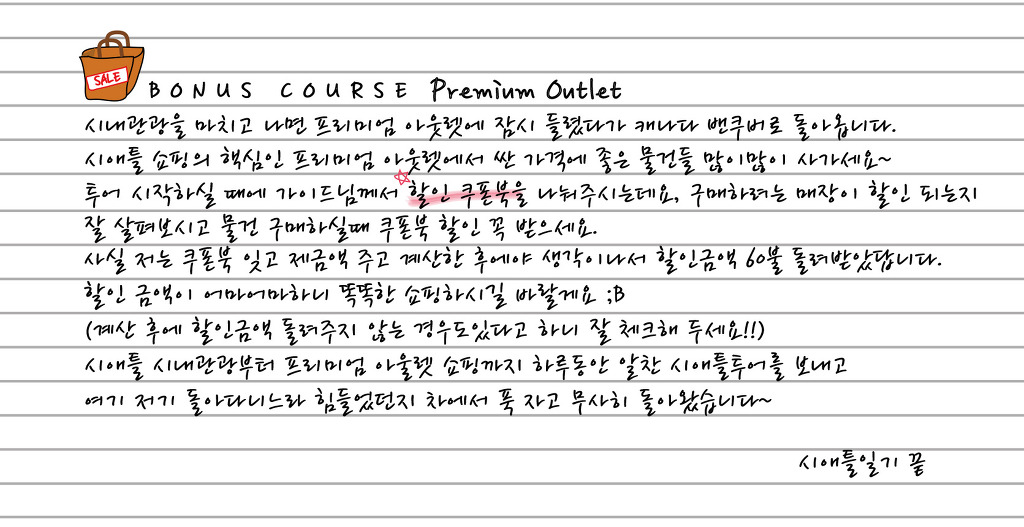 SALE
BONUS COURSE Premium Outlet
시내관광을 마치고 나면 프리미엄 아웃렛에 잠시 들렸다가 캐나다 밴쿠버로 돌아옵니다.
시애틀 쇼핑의 핵심인 프리미엄 아웃렛에서 싼 가격에 좋은 물건들 많이많이 사가세요~
투어 시작하실 때에 가이드님께서 할인 쿠폰북을 나눠주시는데요, 구매하려는 매장이 할인 되는지
잘 살펴보시고 물건 구매하실때 쿠폰북 할인 꼭 받으세요.
사실 저는 쿠폰북 잊고 제금액 주고 계산한 후에야 생각이나서 할인금액 60불 돌려받았답니다.
할인 금액이 어마어마하니 똑똑한 쇼핑하시길 바랄게요 ;B
(계산 후에 할인금액 돌려주지 않는 경우도있다고 하니 잘 체크해 두세요!!)
시애틀 시내관광부터 프리미엄 아울렛 쇼핑까지 하루동안 알찬 시애틀투어를 보내고
여기 저기 돌아다니느라 힘들었던지 차에서 푹 자고 무사히 돌아왔습니다~
시애틀일기 끝